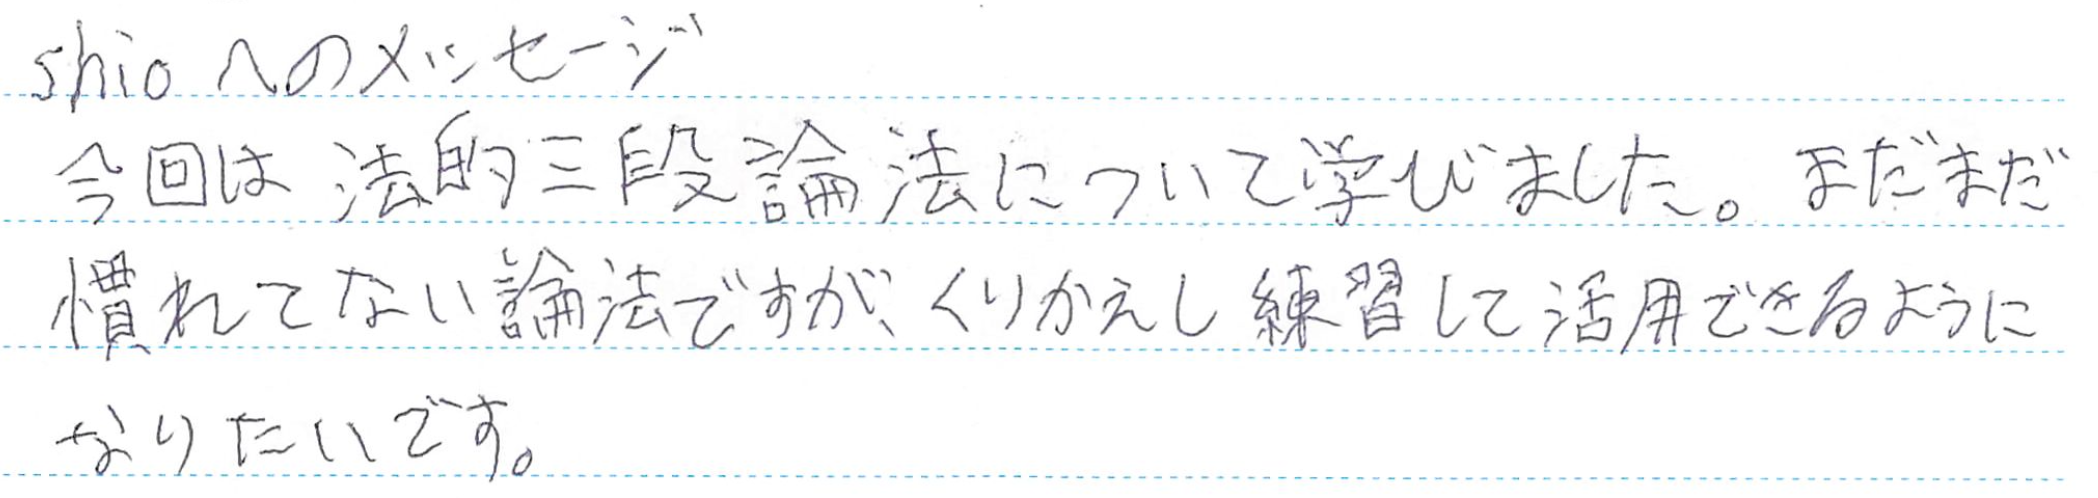 shioへのメッセージ
今回は法的三段論法について学びました。まだまだ
慣れてない論法ですが、くりかえし練習して活用できるように
なりたいです。